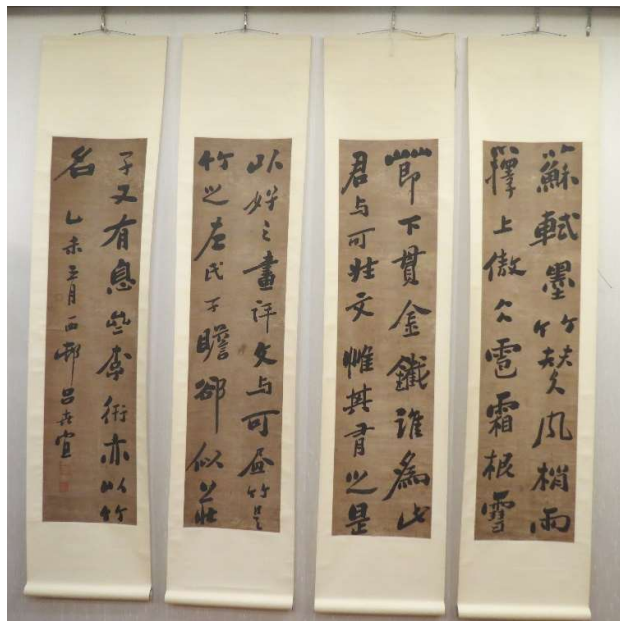 蘇軾墨竹風梢雨
籜上傲冰雹霜根雪
節下貫金鐵誰為此
君与可姓文惟其有之是
以好之畫評文与可画竹是
竹之左氏子瞻卻似莊
子又有息齋李衎亦以竹
名 乙未五月西邨呂世宜